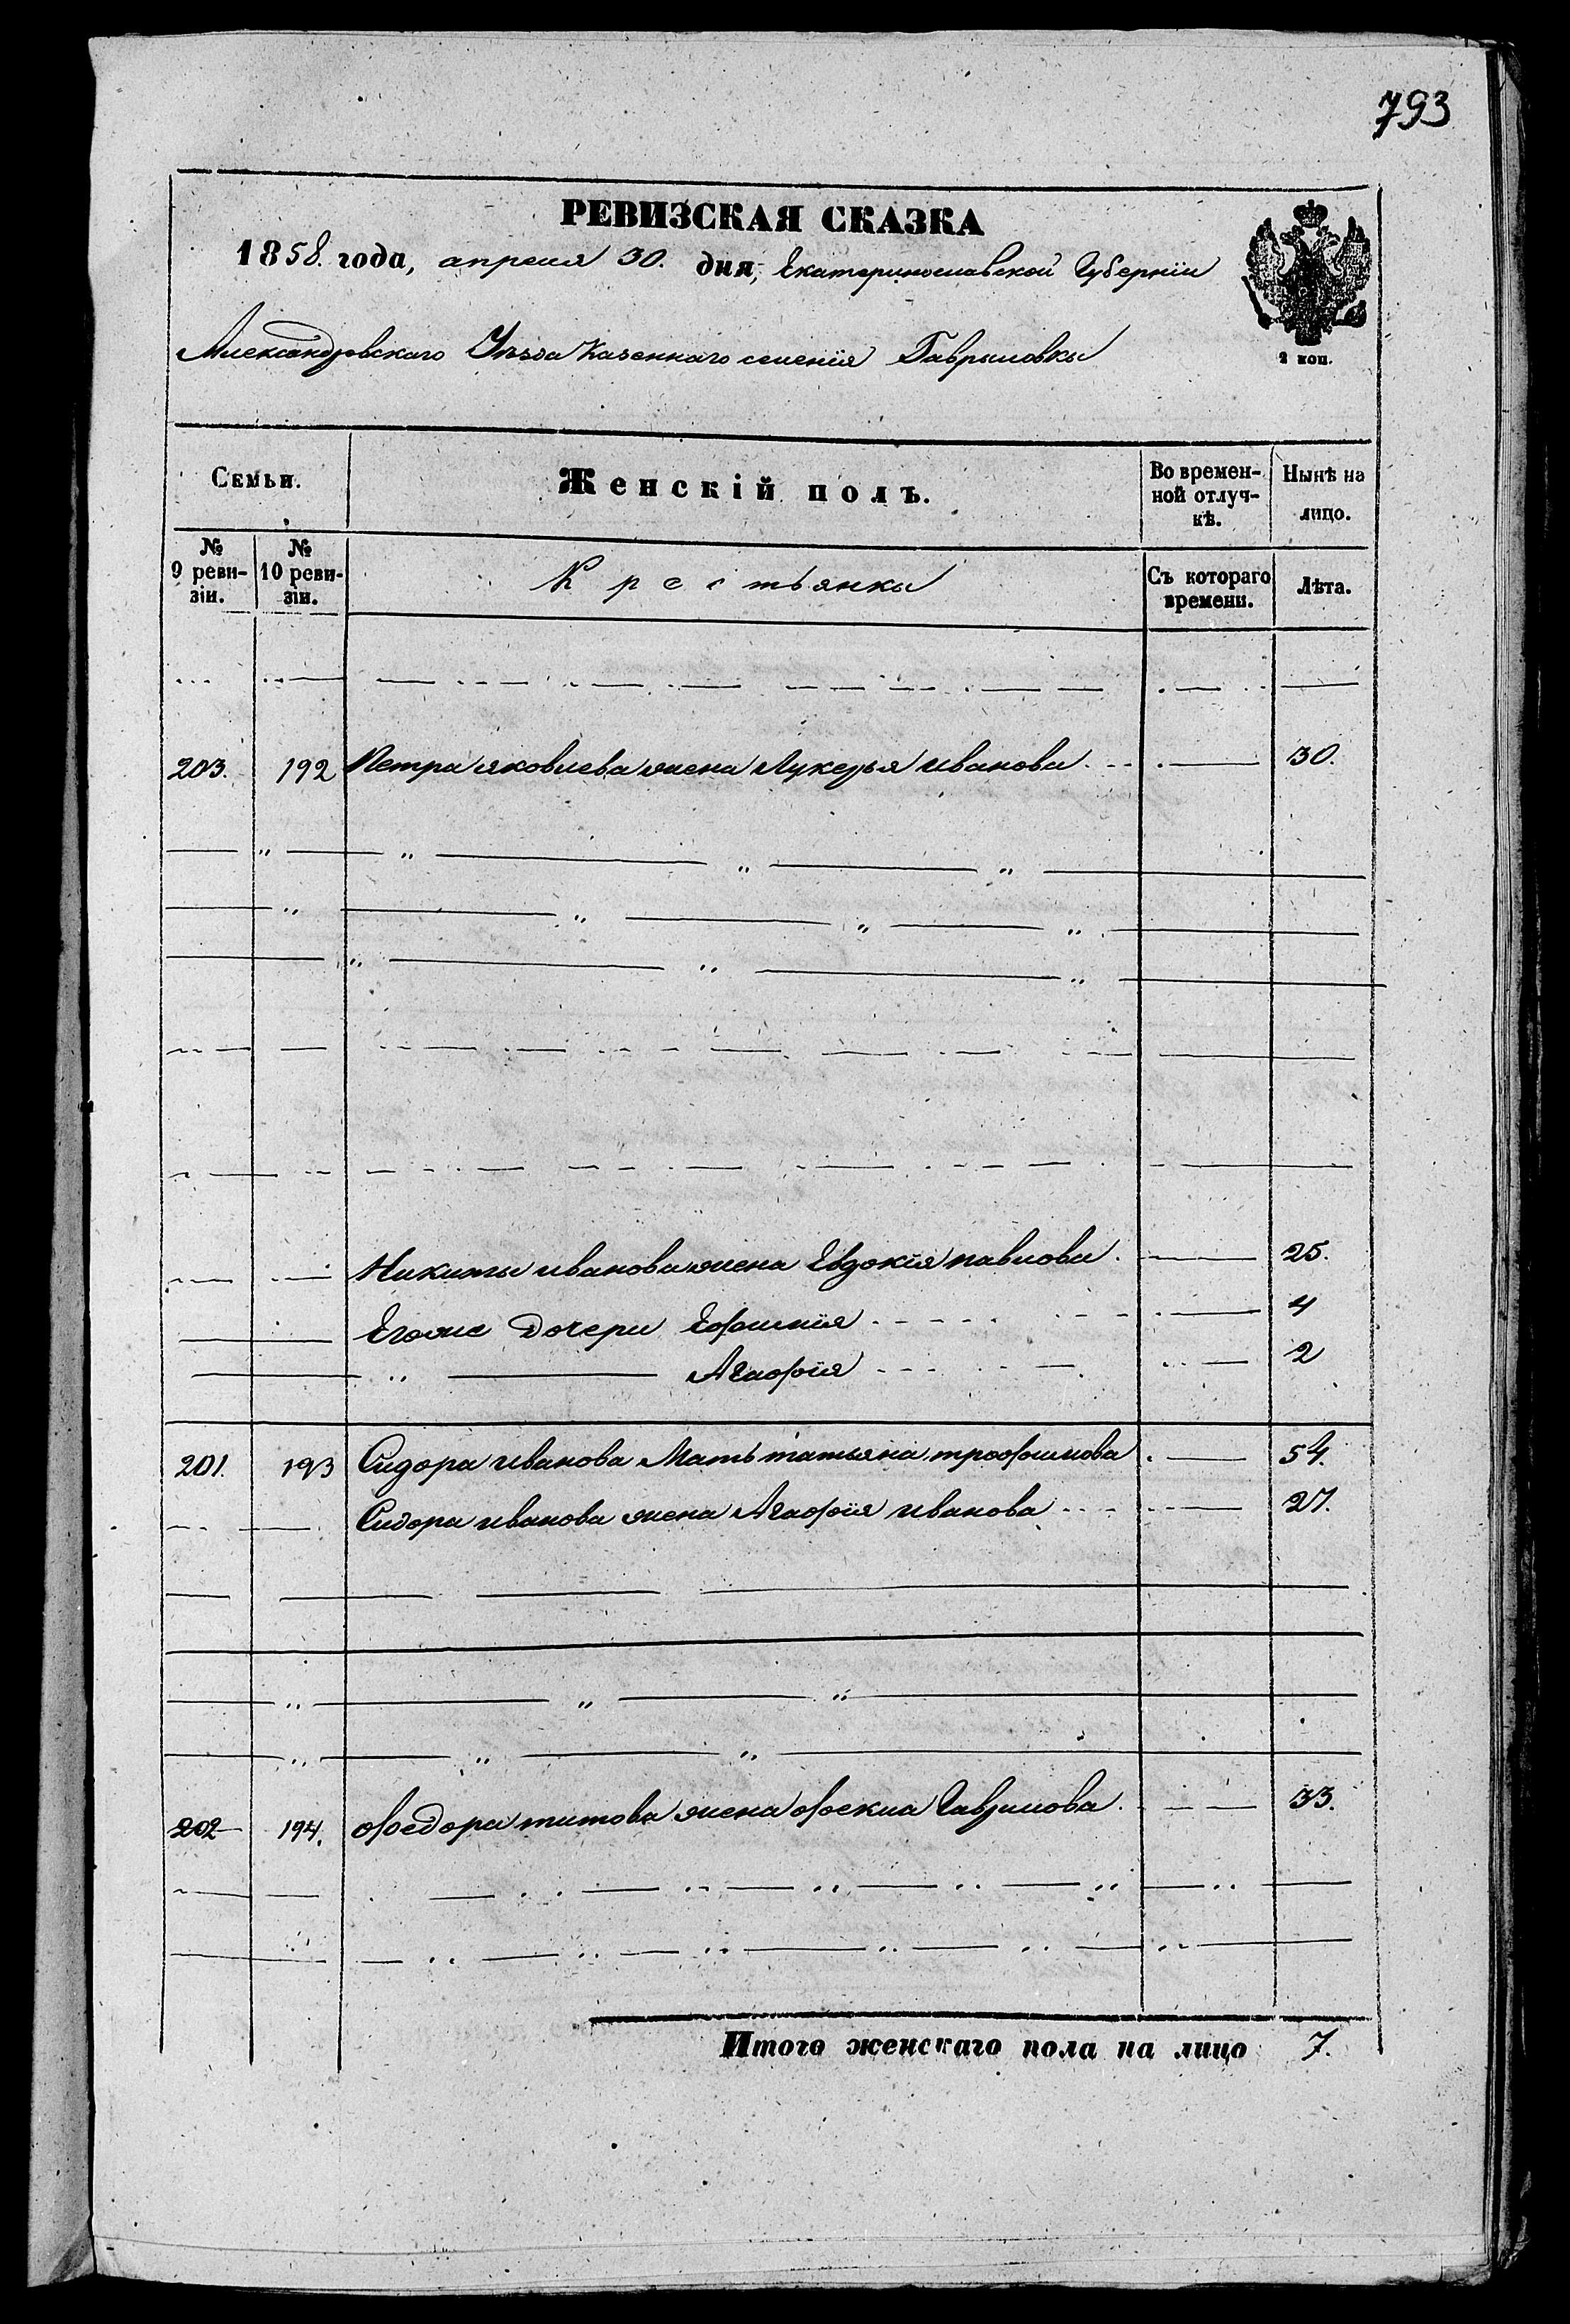 793
РЕВИЗСКАЯ СКАЗКА
1858. года, апреля 30. дня, Екатеринославской Губерніи
Александровскаго Уѣзда Казеннаго селенія Гаврыловкы
2 коп.
Семьи.
Женскій полъ.
Во времен-
ной отлуч-
кѣ.
Нынѣ на
лицо.
№
9 реви-
зіи.
№
10 реви-
зіи.
Крестьянки
Съ котораго
времени.
Лѣта.
203. 192 Петра яковлева жена Лукерья иванова 30.
Никиты иванова жена Евдокія павлова 25.
Егоже Дочери Ефимія 4
" Агафія 2
201. 193 Сидора иванова Мать татьяна трофимова 54.
Сидора иванова жена Агафія иванова 27.
202 194. Федора титова жена фекла Гаврилова 33.
Итого женскаго пола на лицо 7.